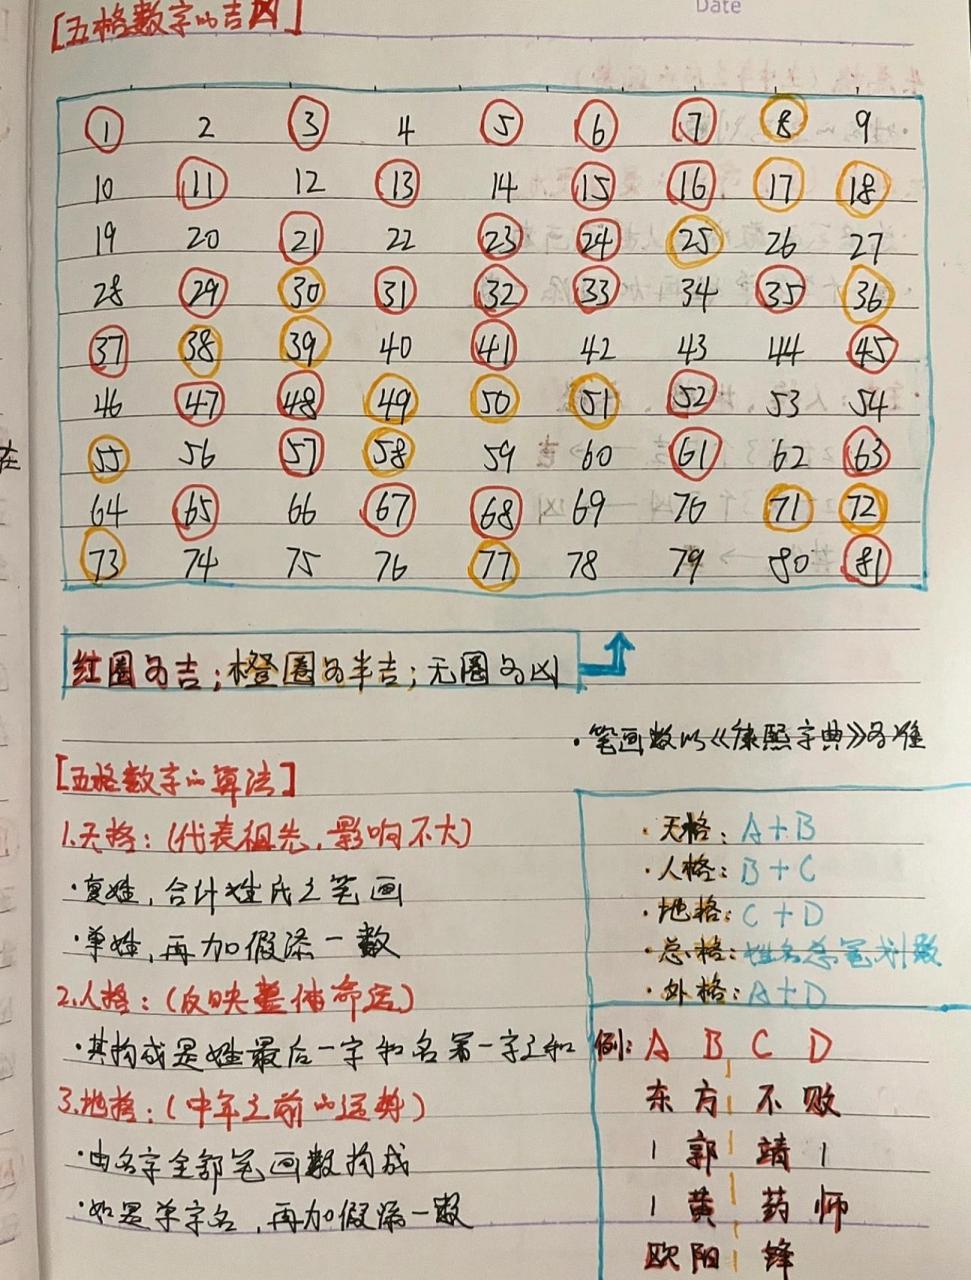 Date
[五格数字的吉凶]
1 2 3 4 5 6 7 8 9
10 11 12 13 14 15 16 17 18
19 20 21 22 23 24 25 26 27
28 29 30 31 32 33 34 35 36
37 38 39 40 41 42 43 44 45
46 47 48 49 50 51 52 53 54
55 56 57 58 59 60 61 62 63
64 65 66 67 68 69 70 71 72
73 74 75 76 77 78 79 80 81
红圈为吉；橙圈为半吉；无圈为凶
·笔画数以《康熙字典》为准
[五格数字的算法]
1.天格：(代表祖先，影响不大)
·复姓，合计姓氏之笔画
·单姓，再加假添一数
2.人格：(反映整体命运)
·其构成是姓最后一字和名第一字之和
3.地格：(中年之前的运势)
·由名字全部笔画数构成
·如是单字名，再加假添一数
·天格：A+B
·人格：B+C
·地格：C+D
·总格：姓名总笔划数
·外格：A+D
例：A B C D
东方 不败
1 郭 靖 1
1 黄 药 师
欧阳 锋